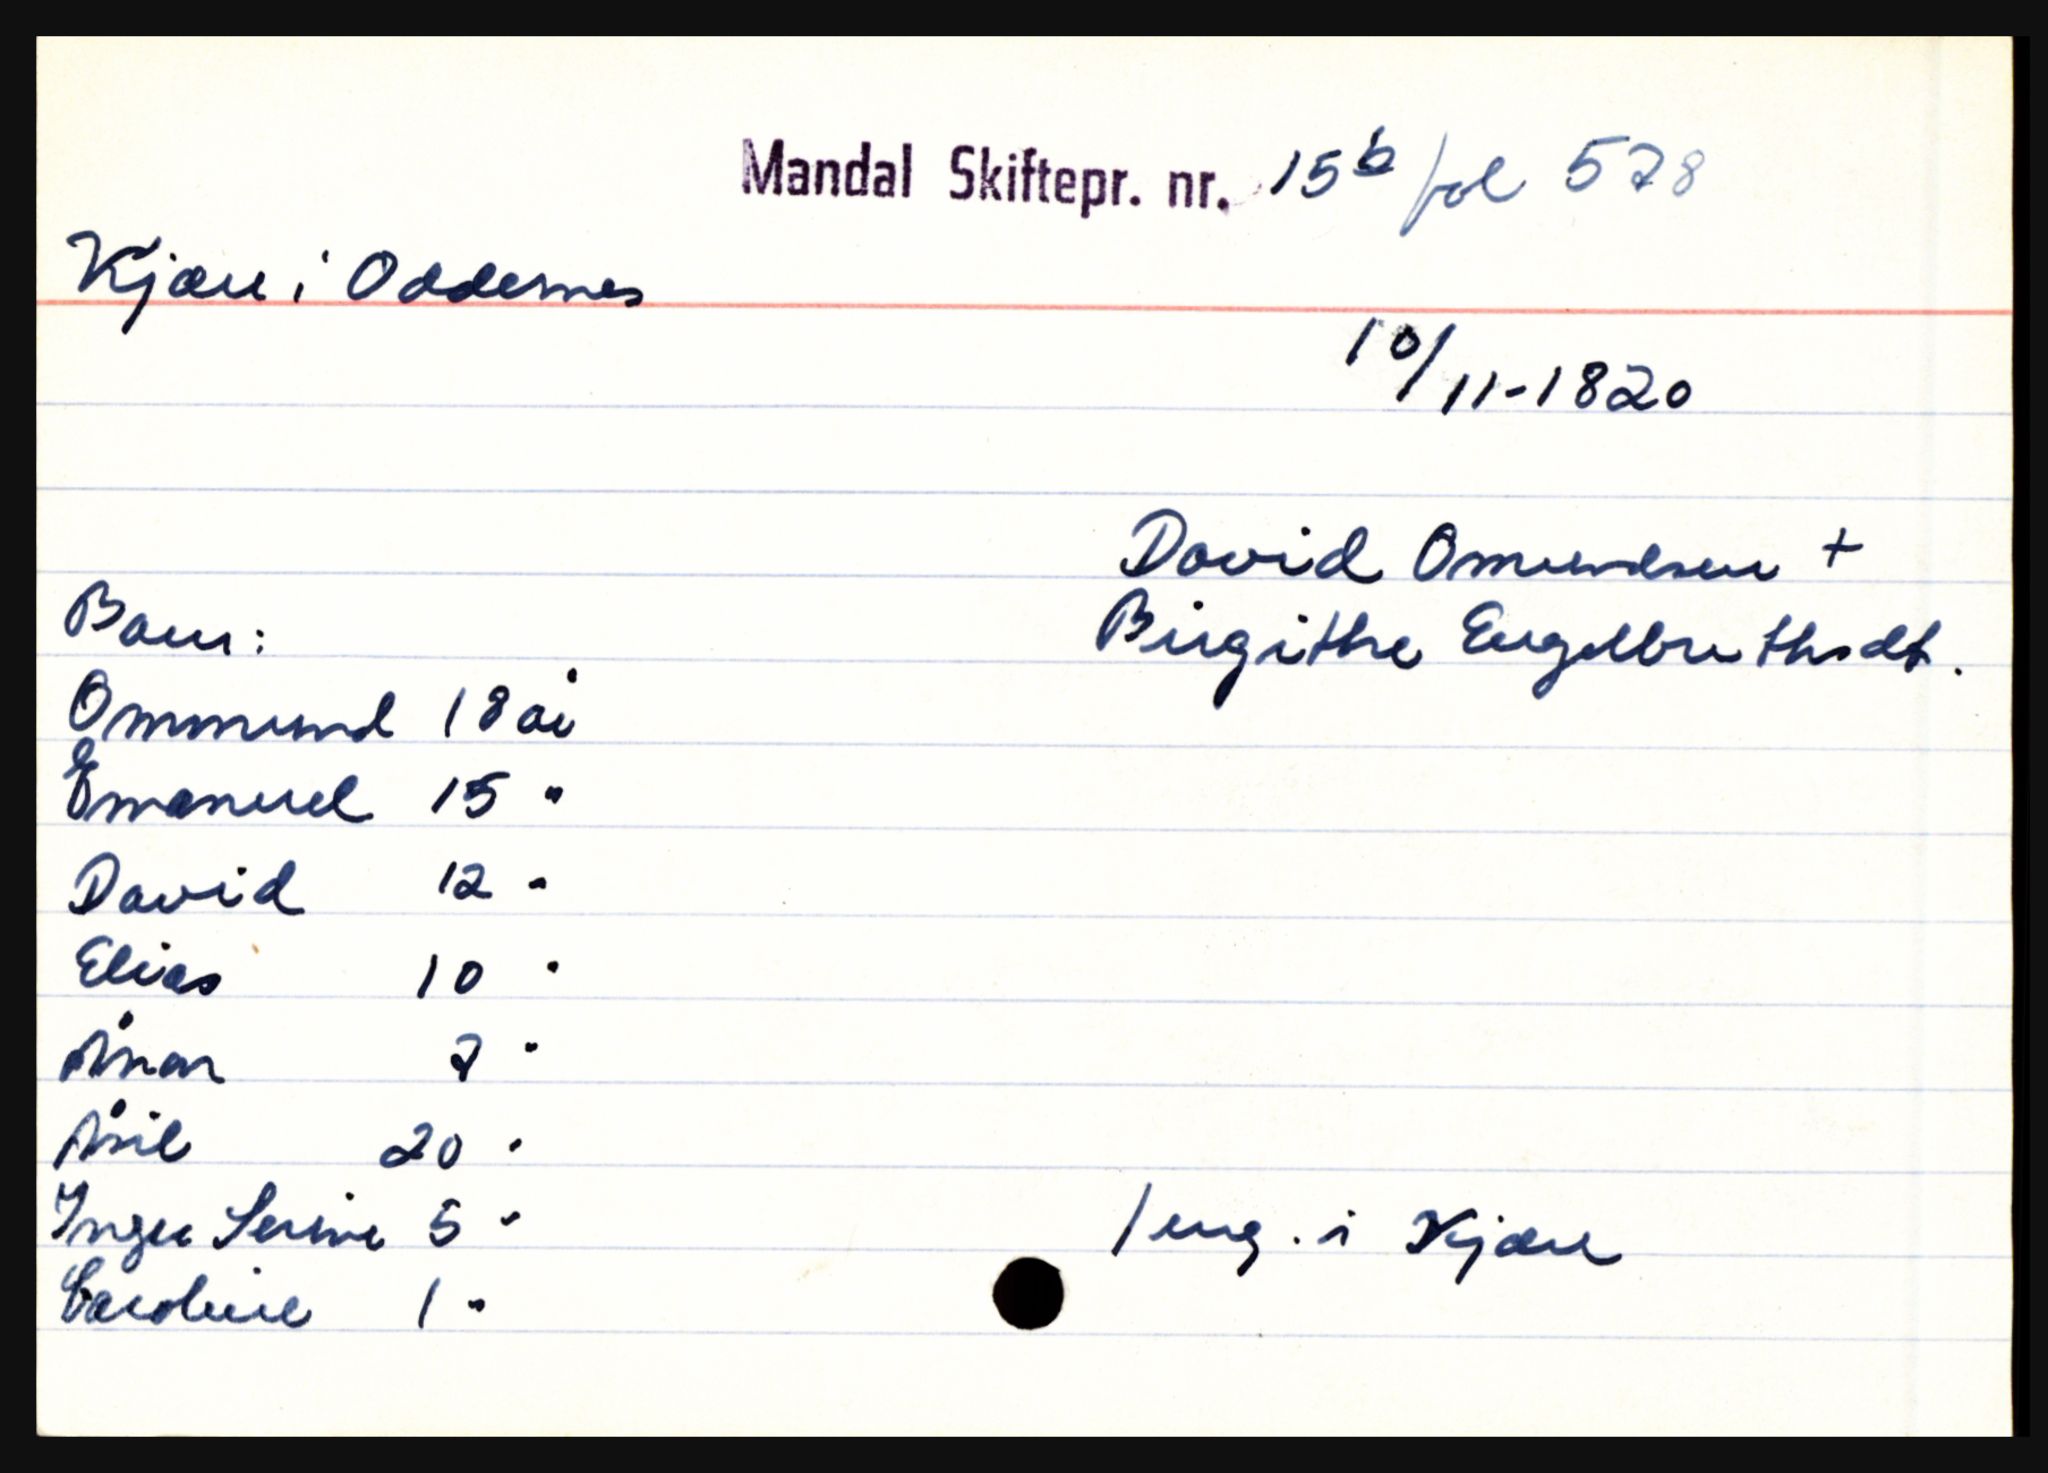 Mandal Skiftepr. nr. 15b fol 578
Kjære i Oddernes
10/11-1820
David Omundsen +
Birgithe Engelbrethsdt.
Barn:
Ommund 18 år
Emanuel 15 "
David 12 "
Elias 10 "
Ånon 7 "
Åsil 20 "
Inger Serine 5 "
Caroline 1 "
1 eng. i Kjære